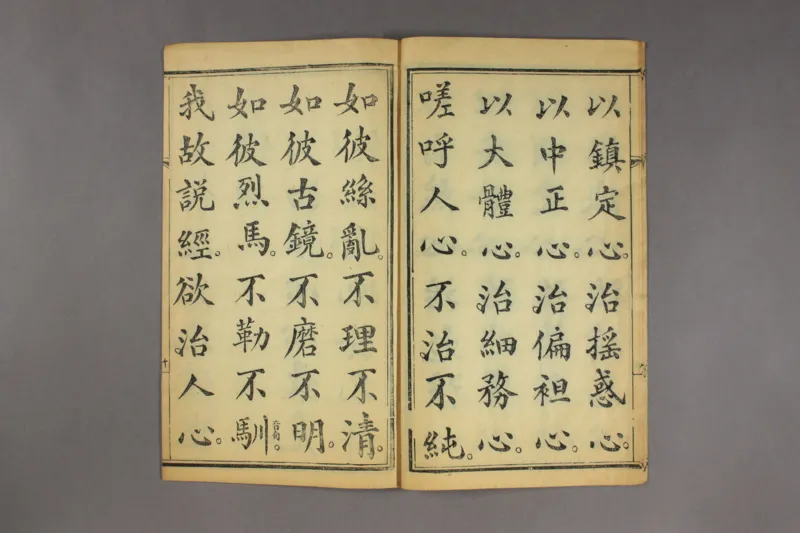 以鎮定心。治搖惑心。
以中正心。治偏袒心。
以大體心。治細務心。
嗟呼人心。不治不純。
如彼絲亂。不理不清。
如彼古鏡。不磨不明。
如彼烈馬。不勒不馴
我故説經。欲治人心。
十